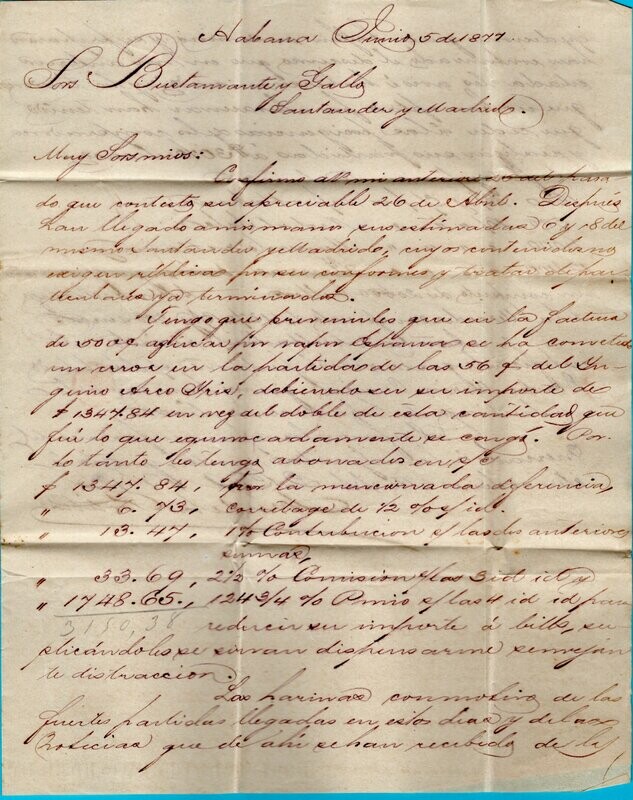 Habana Junio 5 de 1877.
Sors Bustamante y Gallo
Santander y Madrid.
Muy Sors mios:
Confirmo a Vs mi anterior del pasa
do que contesto su apreciable 26 de Abril. Después
han llegado a mis manos sus estimadas 6 y 18 del
mismo Santander y Madrid, cuyos contenidos no
exigen réplicas por ser conformes y tratar de par-
ticulares ya terminados.
Tengo que prevenirles que en la factura
de 500 c/ azúcar por vapor España se ha cometido
un error en la partida de las 56 c/ del In-
genio Arco Iris, debiendo ser su importe de
$ 1347.84 en vez del doble de esta cantidad, que
fué lo que equivocadamente se cargó. Por
lo tanto les tengo abonados en s/c
$ 1347.84, por la mencionada diferencia,
" 6.73, corretage de 1/2 % s/ id.
" 13.47, 1% Contribucion s/ las dos anteriores
sumas,
" 33.69, 2 1/2 % Comision s/ las 3 id id y
" 1748.65., 124 3/4 % Pmio s/ las 4 id id para
3150,38
reducir su importe á billts, su-
plicándoles se sirvan dispensarme semejan-
te distraccion.
Las harinas con motivo de las
fuertes partidas llegadas en estos dias y de las
noticias que de ahi se han recibido de la